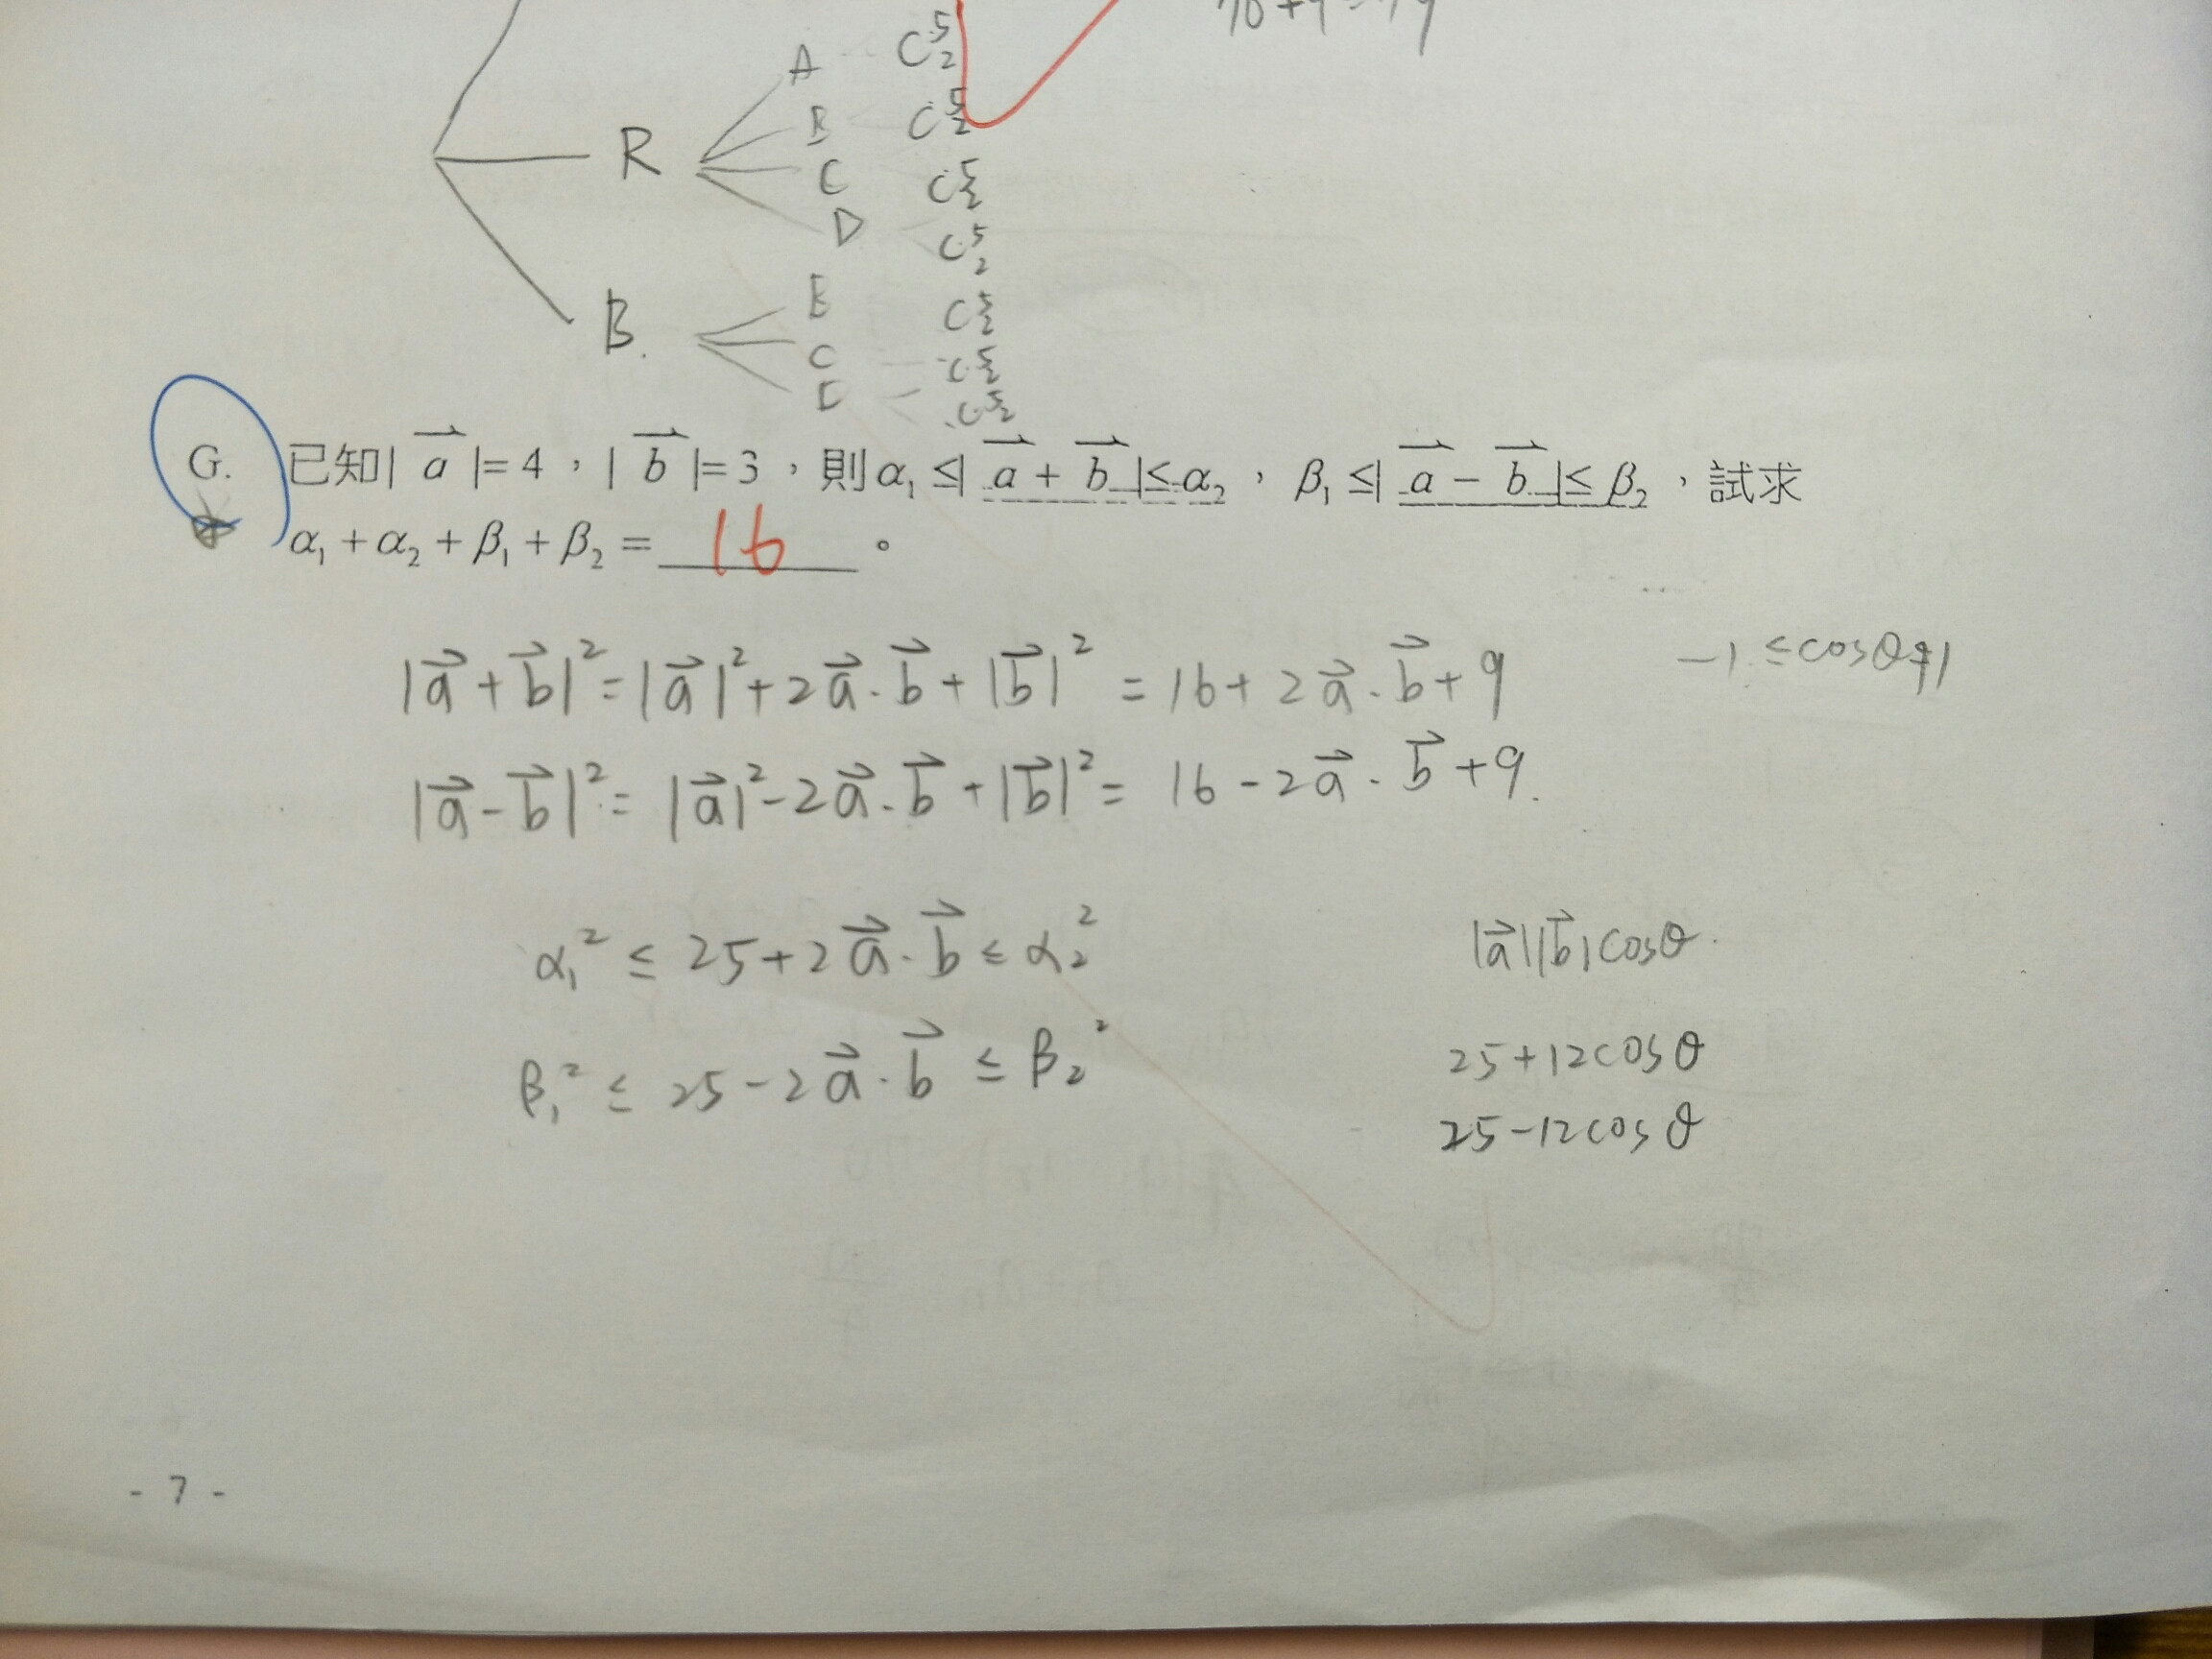 A C⁵₂
B C⁵₂
R C C⁵₂
D C⁵₂
B C⁵₂
B. C C⁵₂
D C⁵₂
G. 已知|a⃗|=4，|b⃗|=3，則α₁≤|a⃗+b⃗|≤α₂，β₁≤|a⃗-b⃗|≤β₂，試求
α₁+α₂+β₁+β₂=16。
-1≤cosθ≤1
|a⃗+b⃗|²=|a⃗|²+2a⃗·b⃗+|b⃗|²=16+2a⃗·b⃗+9
|a⃗-b⃗|²=|a⃗|²-2a⃗·b⃗+|b⃗|²=16-2a⃗·b⃗+9.
α₁²≤25+2a⃗·b⃗≤α₂²
|a⃗||b⃗|cosθ.
β₁²≤25-2a⃗·b⃗≤β₂²
25+12cosθ
25-12cosθ
- 7 -